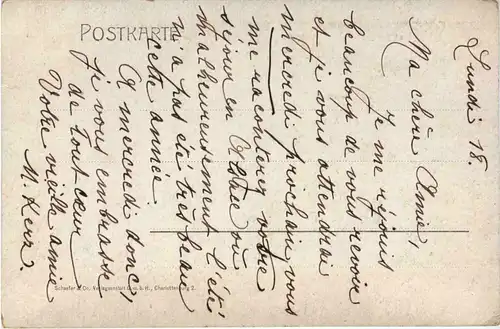 POSTKARTE
Lundi 18.
Ma chère Amie,
Je me réjouis
beaucoup de vous revoir
et je vous attendrai
mercredi prochain, vous
me raconterez votre
séjour en où
malheureusement l'été
n'a pas été très beau
cette année.
A mercredi donc,
je vous embrasse
de tout cœur
Votre vieille amie
M. Kern.
Schaefer & Co. Verlagsanstalt G.m.b.H., Charlottenburg 2.